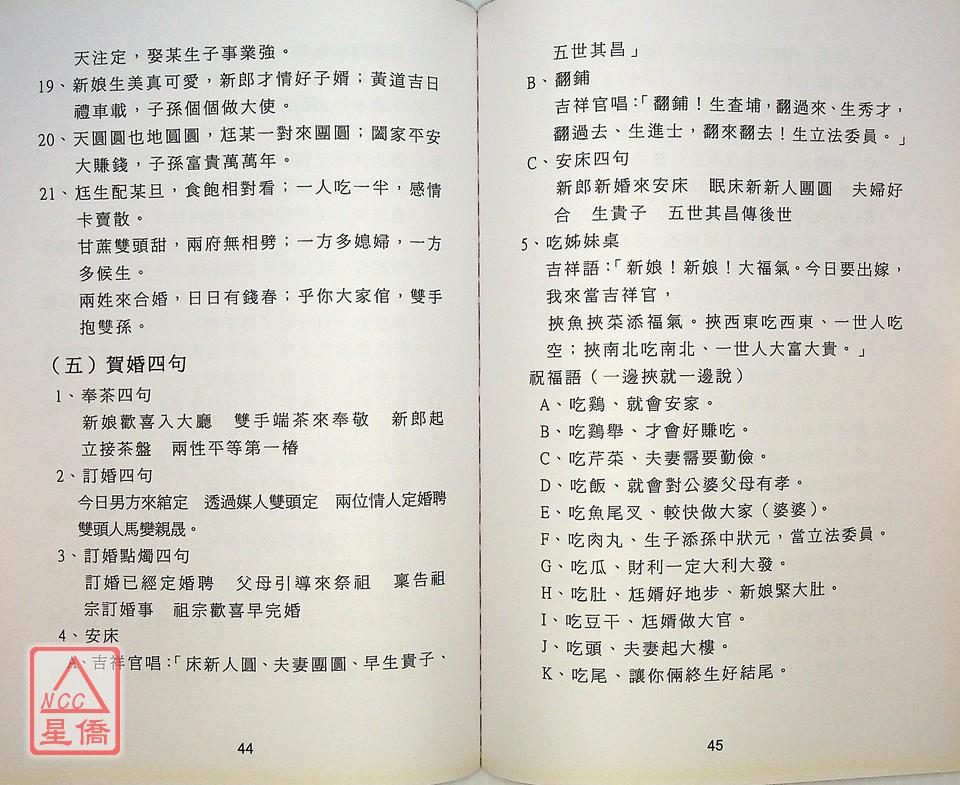 天注定，娶某生子事業強。
19、新娘生美真可愛，新郎才情好子婿；黃道吉日
禮車載，子孫個個做大使。
20、天圓圓也地圓圓，尪某一對來團圓；闔家平安
大賺錢，子孫富貴萬萬年。
21、尪生配某旦，食飽相對看；一人吃一半，感情
卡賣散。
甘蔗雙頭甜，兩府無相劈；一方多媳婦，一方
多候生。
兩姓來合婚，日日有錢春；乎你大家倌，雙手
抱雙孫。
（五）賀婚四句
1、奉茶四句
新娘歡喜入大廳　雙手端茶來奉敬　新郎起
立接茶盤　兩性平等第一樁
2、訂婚四句
今日男方來綰定　透過媒人雙頭定　兩位情人定婚聘
雙頭人馬變親晟。
3、訂婚點燭四句
訂婚已經定婚聘　父母引導來祭祖　稟告祖
宗訂婚事　祖宗歡喜早完婚
4、安床
A、吉祥官唱：「床新人圓、夫妻團圓、早生貴子、
NCC
星僑
44
五世其昌」
B、翻鋪
吉祥官唱：「翻鋪！生查埔，翻過來、生秀才，
翻過去、生進士，翻來翻去！生立法委員。」
C、安床四句
新郎新婚來安床　眠床新新人團圓　夫婦好
合　生貴子　五世其昌傳後世
5、吃姊妹桌
吉祥語：「新娘！新娘！大福氣。今日要出嫁，
我來當吉祥官，
挾魚挾菜添福氣。挾西東吃西東、一世人吃
空；挾南北吃南北、一世人大富大貴。」
祝福語（一邊挾就一邊說）
A、吃鷄、就會安家。
B、吃鷄舉、才會好賺吃。
C、吃芹菜、夫妻需要勤儉。
D、吃飯、就會對公婆父母有孝。
E、吃魚尾叉、較快做大家（婆婆）。
F、吃肉丸、生子添孫中狀元，當立法委員。
G、吃瓜、財利一定大利大發。
H、吃肚、尪婿好地步、新娘緊大肚。
I、吃豆干、尪婿做大官。
J、吃頭、夫妻起大樓。
K、吃尾、讓你倆終生好結尾。
45